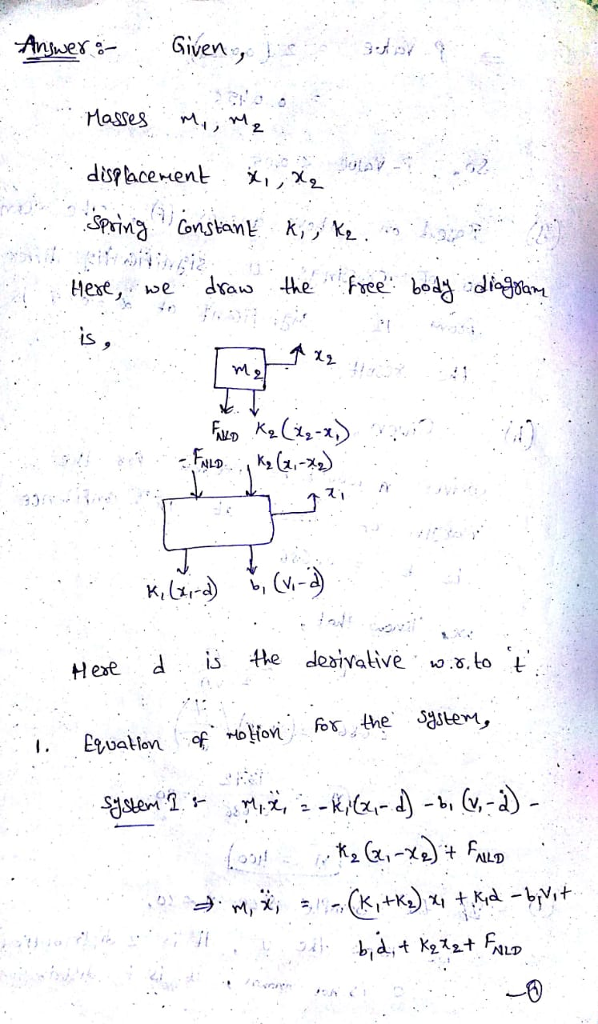 Answer :- Given,
Masses m₁, m₂
displacement x₁, x₂
Spring constant K₁, K₂.
Here, we draw the free body diagram
is,
m₂ x₂
F_NLD K₂(x₂-x₁)
-F_NLD K₂(x₁-x₂)
x₁
K₁(x₁-d) b₁(v₁-ḋ)
Here d is the derivative w.r.to 't'.
1. Equation of Motion for the system,
System 1 :- m₁ẍ₁ = -K₁(x₁-d) - b₁(v₁-ḋ) -
K₂(x₁-x₂) + F_NLD
⇒ m₁ẍ₁ = -(K₁+K₂)x₁ + K₁d - b₁v₁ +
b₁ḋ₁ + K₂x₂ + F_NLD
—①